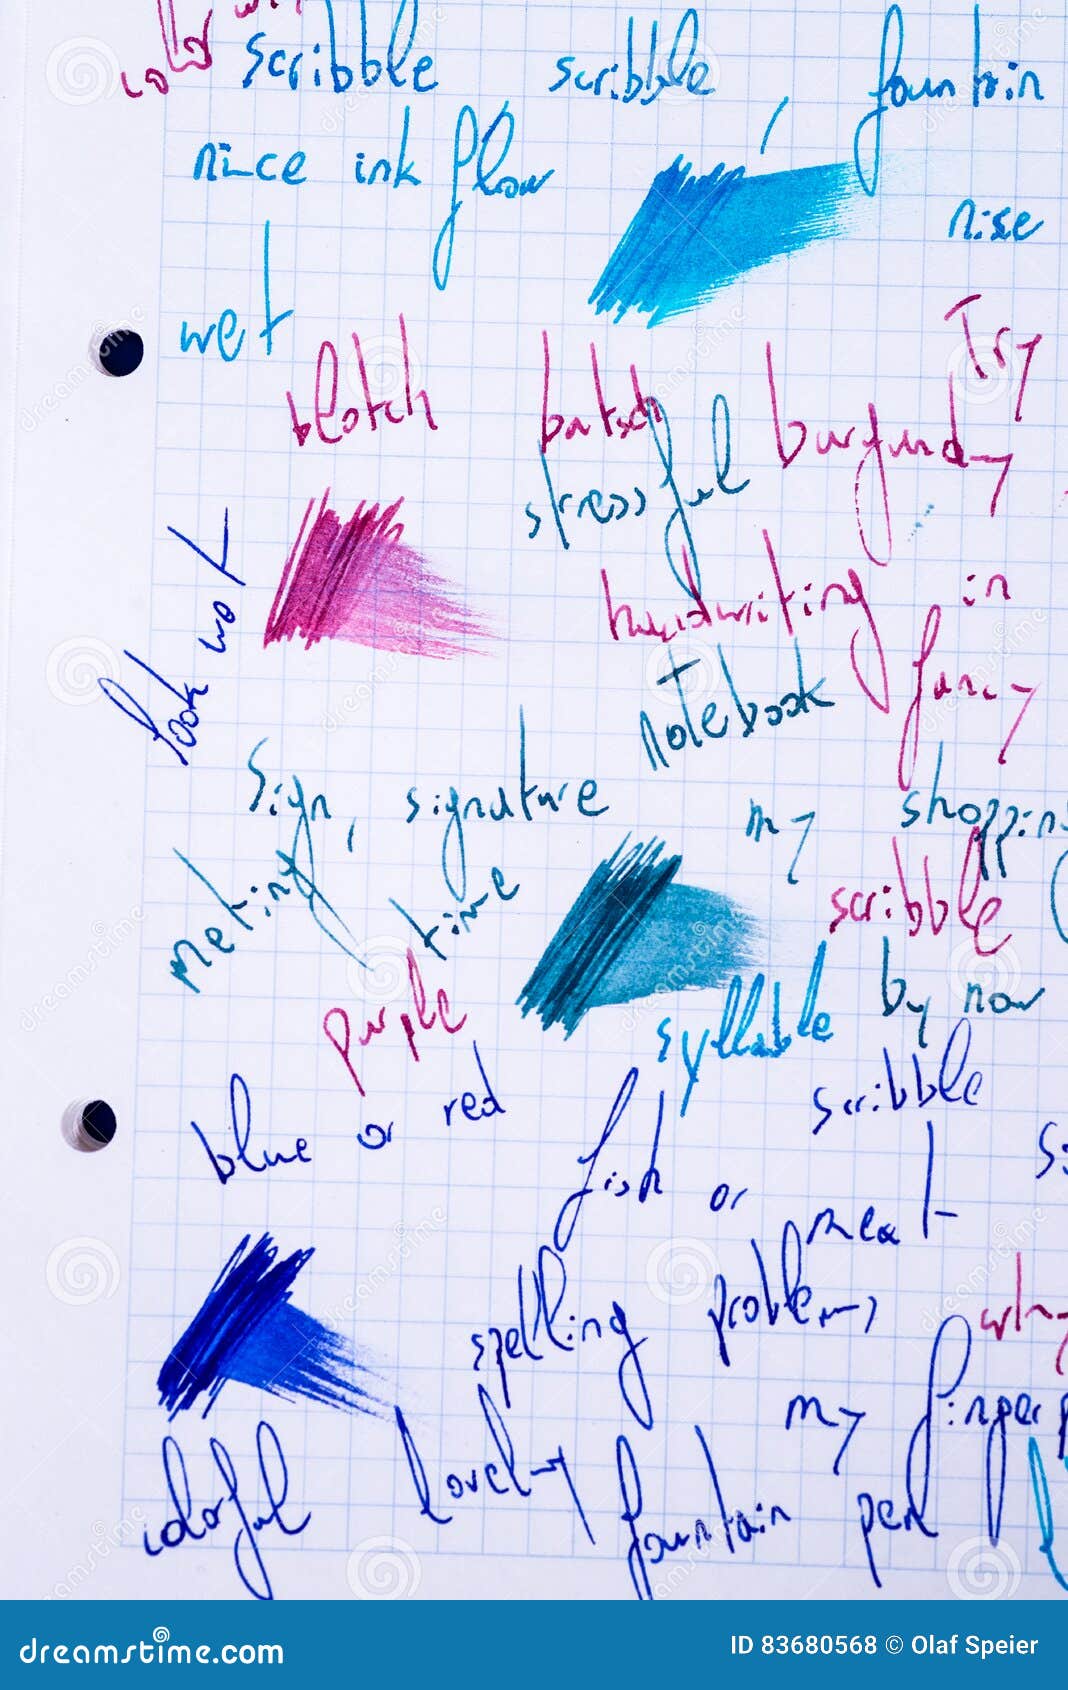 color
scribble scribble, fountain
nice ink flow
nise
wet
Try
blotch batsch burgundy
stressful
look wet
handwriting in
fancy
notebook
Sign, signature
my shopping
meting time
scribble
by now
purple
syllable
blue or red
scribble
fish or
meat
spelling problems
why
my finger
colorful lovely
fountain pen
dreamstime.com
ID 83680568 © Olaf Speier